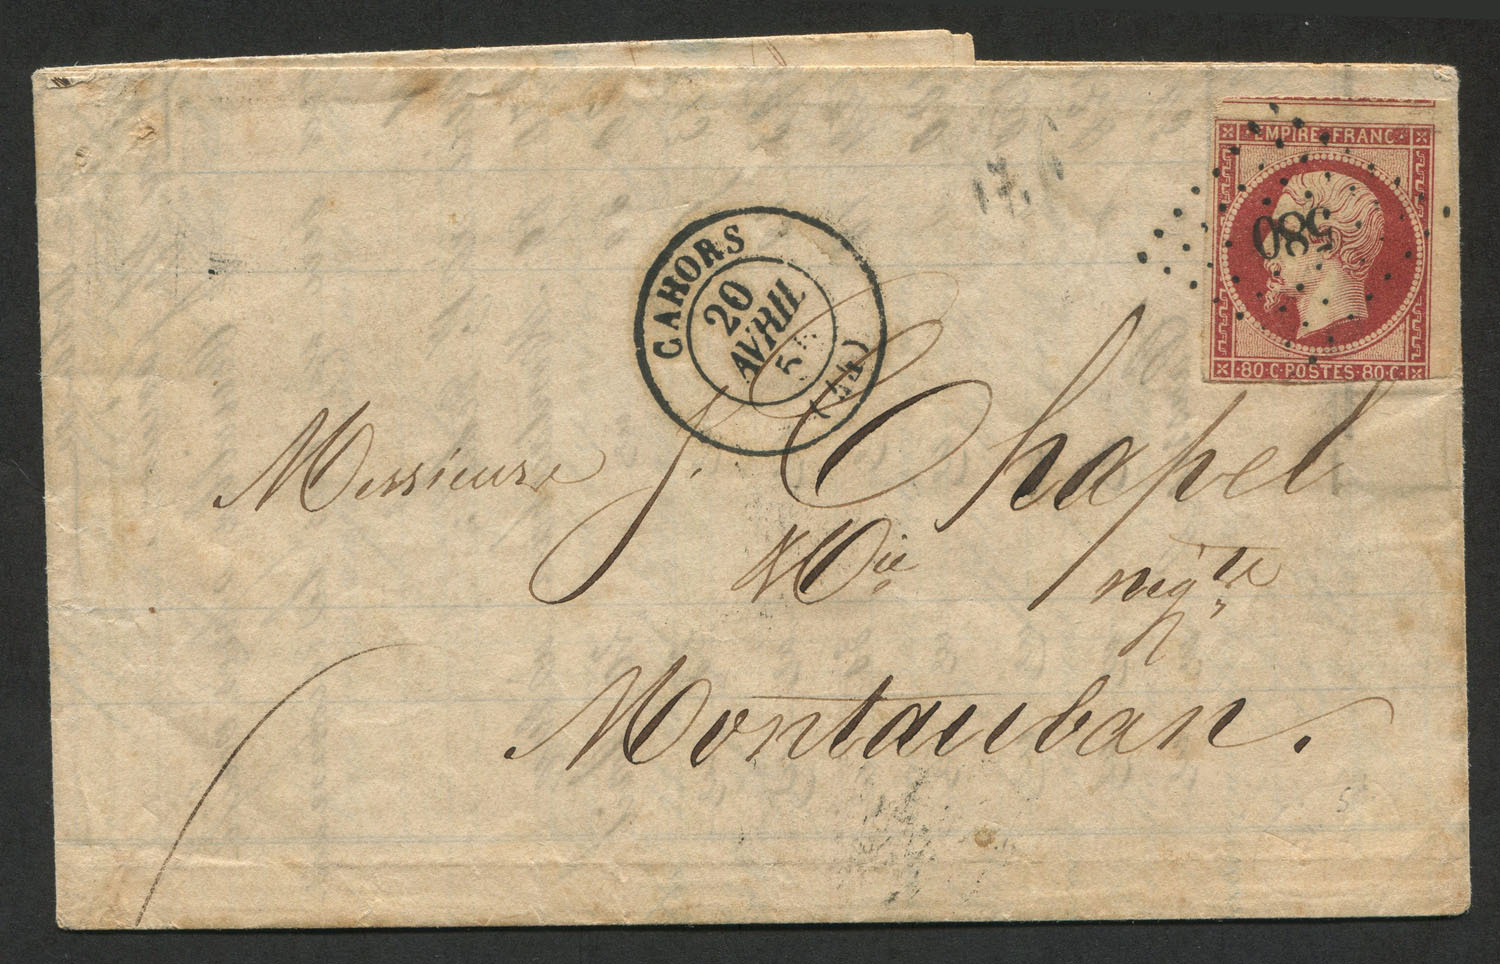 EMPIRE FRANC
580
80·C·POSTES·80·C·
CAHORS
20
AVRIL
55
(44)
17.
Messieurs J. Chapel
&
Cie négts
Montauban.
5